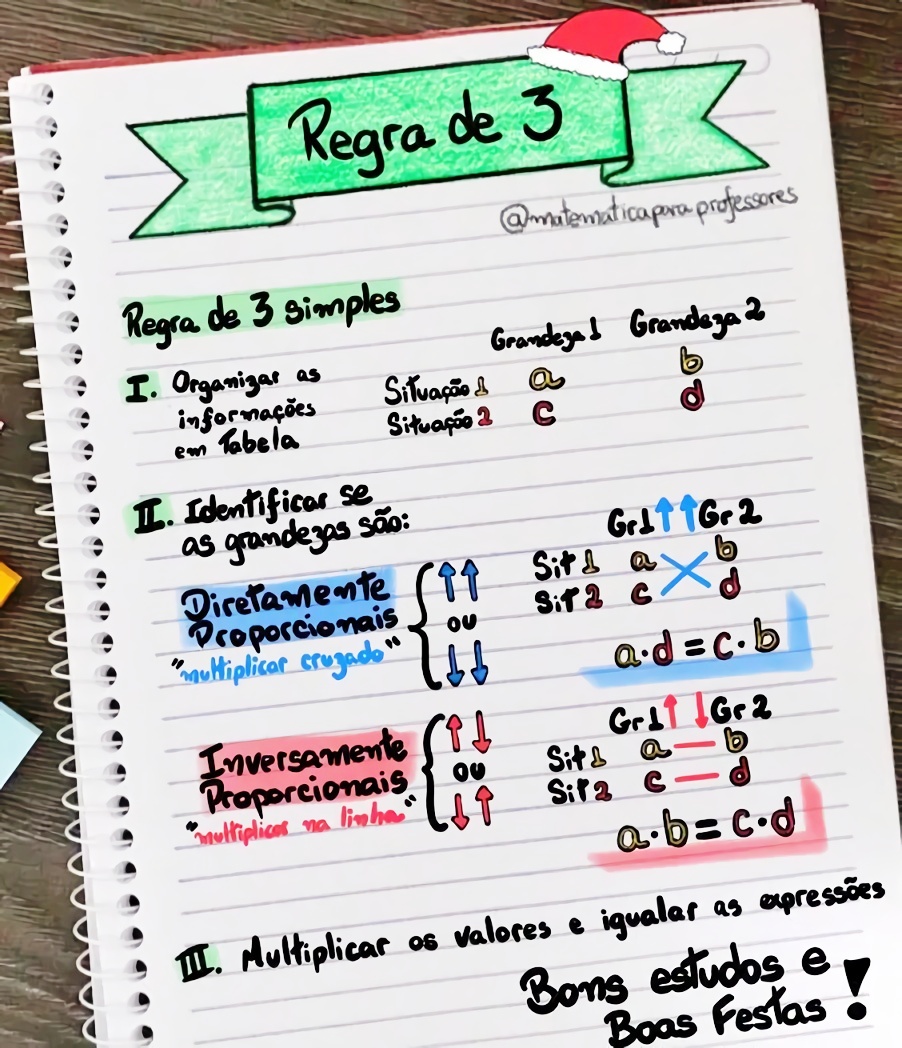 Regra de 3
@matematicaparaprofessores
Regra de 3 simples
Grandeza 1 Grandeza 2
I. Organizar as
informações
em Tabela
Situação 1 a b
Situação 2 c d
II. Identificar se
as grandezas são:
Diretamente
Proporcionais
"multiplicar cruzado"
↑↑
ou
↓↓
Gr1 ↑↑ Gr2
Sit 1 a b
Sit 2 c d
a·d = c·b
Inversamente
Proporcionais
"multiplicar na linha"
↑↓
ou
↓↑
Gr1 ↑ ↓ Gr2
Sit 1 a — b
Sit 2 c — d
a·b = c·d
III. Multiplicar os valores e igualar as expressões
Bons estudos e
Boas Festas!